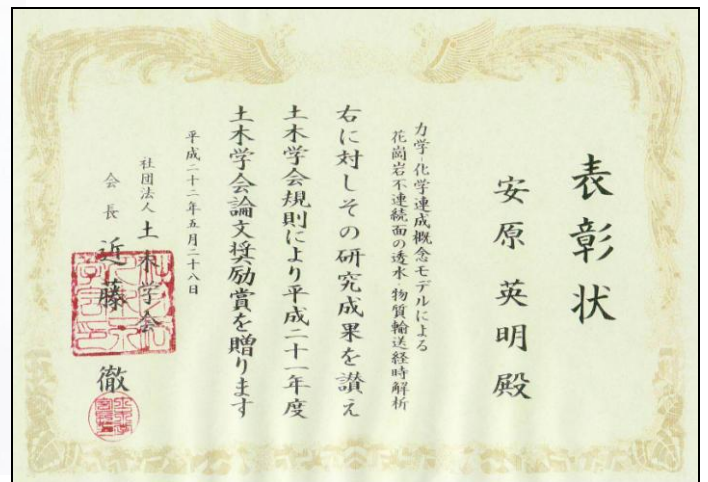 表彰状
安原英明殿
力学-化学連成概念モデルによる
花崗岩不連続面の透水-物質輸送経時解析
右に対しその研究成果を讃え
土木学会規則により平成二十一年度
土木学会論文奨励賞を贈ります
平成二十二年五月二十八日
社団法人 土木学会
会長 近藤 徹